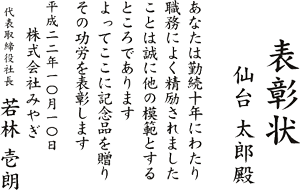 表彰状
仙台 太郎殿
あなたは勤続十年にわたり
職務によく精励されました
ことは誠に他の模範とする
ところであります
よってここに記念品を贈り
その功労を表彰します
平成二二年一〇月一〇日
株式会社みやぎ
代表取締役社長 若林 壱朗